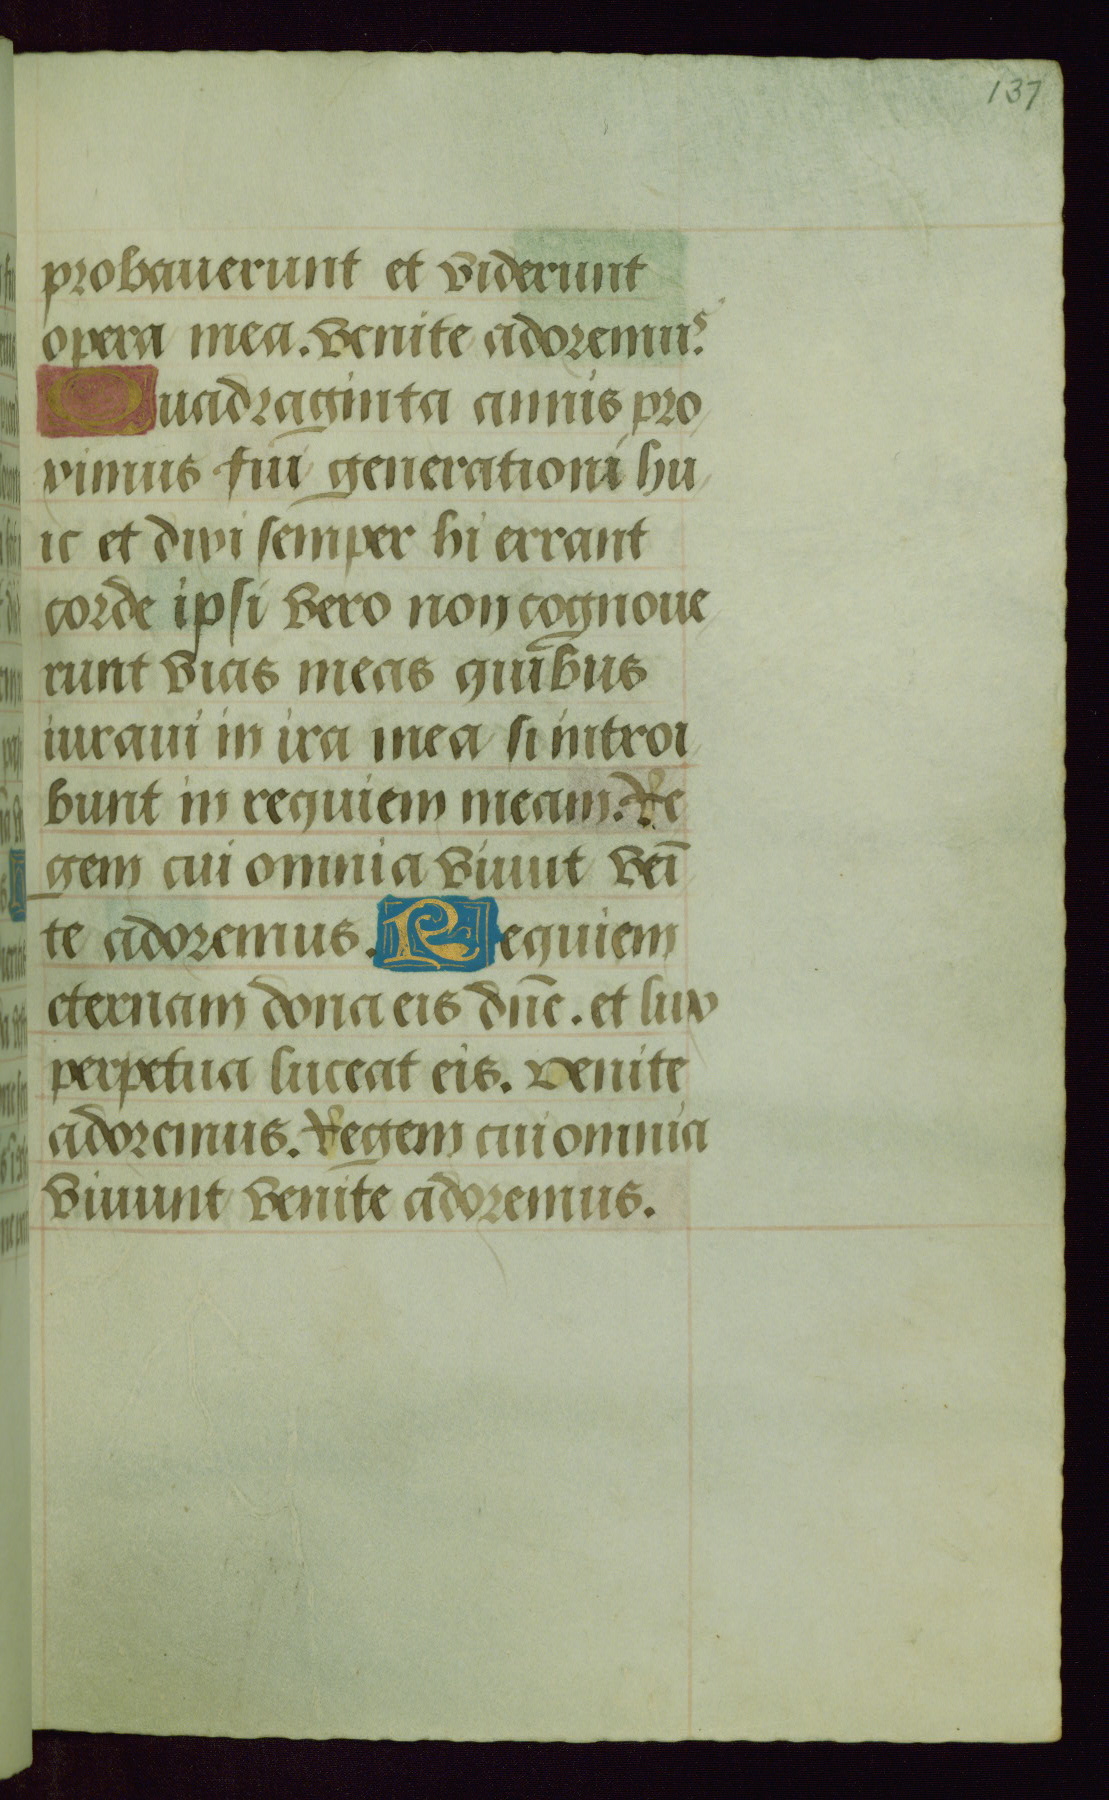 137
probauerunt et viderunt
opera mea. venite adoremus.
Quadraginta annis pro
ximus fui generationi hu
ic et dixi semper hi errant
corde ipsi vero non cognoue
runt vias meas quibus
iuraui in ira mea si introi
bunt in requiem meam. Re
gem cui omnia viuut veī
te adoremus. Requiem
eternam dona eis dñe. et lux
perpetua luceat eis. Venite
adoremus. Regem cui omnia
viuunt venite adoremus.